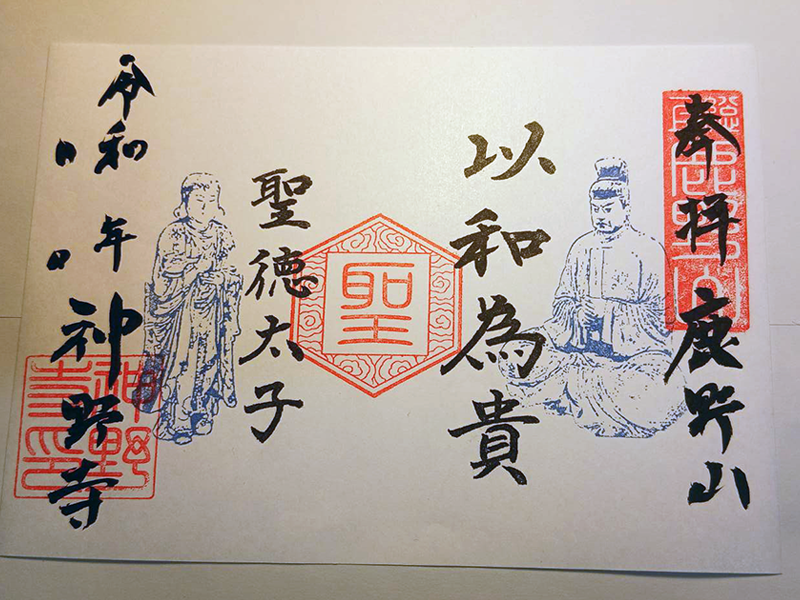 奉拝 鹿野山
以和為貴
聖
聖徳太子
令和 年
月 日
神野寺
神野寺印